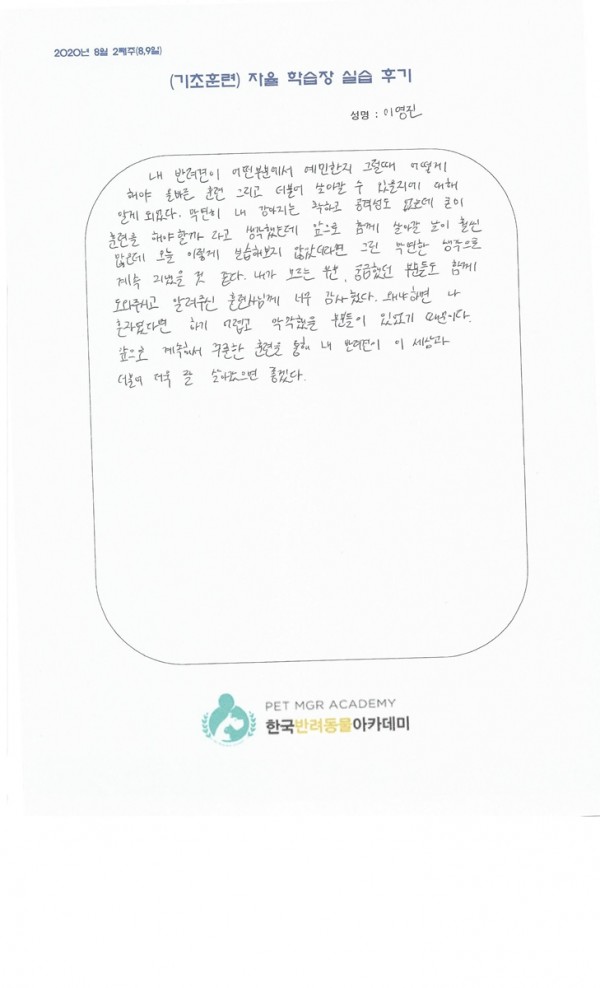 2020년 8월 2째주(8,9일)
(기초훈련) 자율 학습장 실습 후기
성명 : 이영진
내 반려견이 어떤부분에서 예민한지 그럴때 어떻게
해야 올바른 훈련 그리고 더불어 살아갈 수 있을지에 대해
알게 되었다. 막연히 내 강아지는 착하고 공격성도 없는데 굳이
훈련을 해야할까 라고 생각했는데 앞으로 함께 살아갈 날이 훨씬
많은데 오늘 이렇게 실습해보지 않았더라면 그런 막연한 생각으로
계속 지냈을 것 같다. 내가 모르는 부분, 궁금했던 부분들도 함께
도와주시고 알려주신 훈련사님께 너무 감사했다. 왜냐하면 나
혼자였다면 하기 어렵고 막막했을 부분들이 있었기 때문이다.
앞으로 계속해서 꾸준한 훈련을 통해 내 반려견이 이 세상과
더불어 더욱 잘 살아갔으면 좋겠다.
PET MGR ACADEMY
한국반려동물아카데미